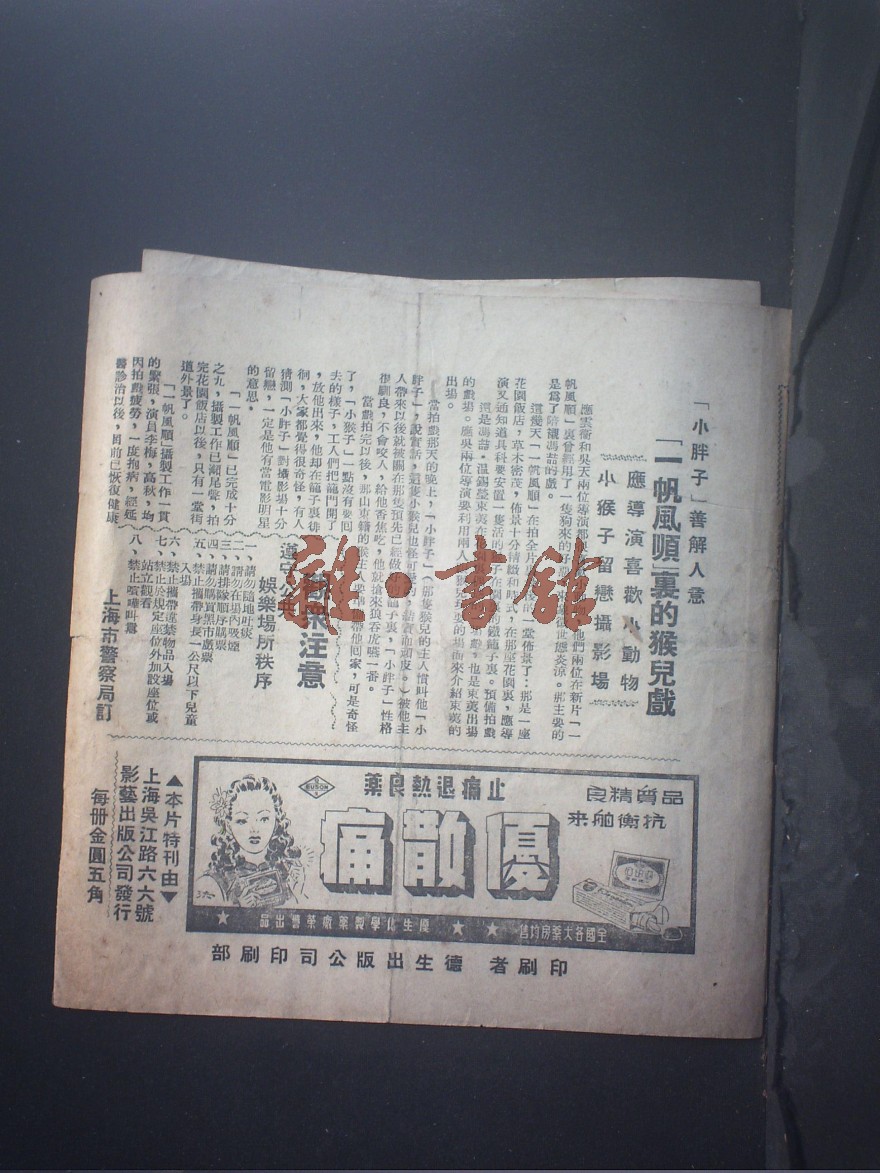 「小胖子」善解人意
「一帆風順」裏的猴兒戲
應導演喜歡小動物
小猴子留戀攝影場
應雲衛和吳天兩位導演都
他們兩位在新片「一
帆風順」裏曾經用了一隻狗來的好
世態炎涼。那主要的
是爲了陪襯馮喆的戲。
這幾天「一帆風順」在拍全片
一堂佈景了：那是一座
花園飯店，草木密茂，佈景十分精緻和時式，在那座花園裏，應導
演又通知道具科要安置一隻活的
子在園
鐵籠子裏。預備拍戲
還是馮喆，溫錫瑩東夷在
戲，也是東夷出場
的戲場。應吳兩位導演要利用兩人
猴兒
的場面來介紹東夷的
出場。
當拍戲那天的晚上，「小胖子」（那隻猴兒的主人慣叫他「小
胖子」，說實話，這隻小猴兒也怪可
頑皮。）被他主
人帶來以後就被關在那隻預先已經做
籠子裏，「小胖子」性格
很馴良，不會咬人，給他香蕉吃，他就搶來狼吞虎嚥一番。
當戲拍完以後，那山東籍的猴主
帶他回家，可是奇怪
了，「小猴子」一點沒有要回
去的樣子，工人們把籠門開了
，放他出來，他却在籠子裏徘
徊，大家都覺得很奇怪，有人
猜測「小胖子」對攝影場十分
留戀，一定是他有當電影明星
的意思。
「一帆風順」已完成十分
之九，攝製工作已瀕尾聲，拍
完花園飯店以後，只有一堂街
道外景了。
「一帆風順」攝製工作一貫
的緊張，演員李梅，高秋，均
因拍戲疲勞，一度抱病，經延
醫診治以後，目前已恢復健康
觀衆注意
遵守公共
娛樂場所秩序
一、請勿隨地吐痰
二、請勿在場內吸煙
三、請排隊順序購票
四、請勿購買黑市戲票
五、禁止攜帶身長一公尺以下兒童
入場
六、禁止攜帶違禁物品入場
七、禁止於規定座位外加設座位或
站立觀看
八、禁止喧嘩叫囂
上海市警察局訂
雜·書館
品質精良
抗衡舶來
止痛退熱良藥
EUSON
優散痛
全國各大藥房均售
★ ★ 優生化學製藥廠藥醫出品 ★
▲本片特刊由▼
上海吳江路六六號
影藝出版公司發行
每册金圓五角
印刷者 德生出版公司印刷部